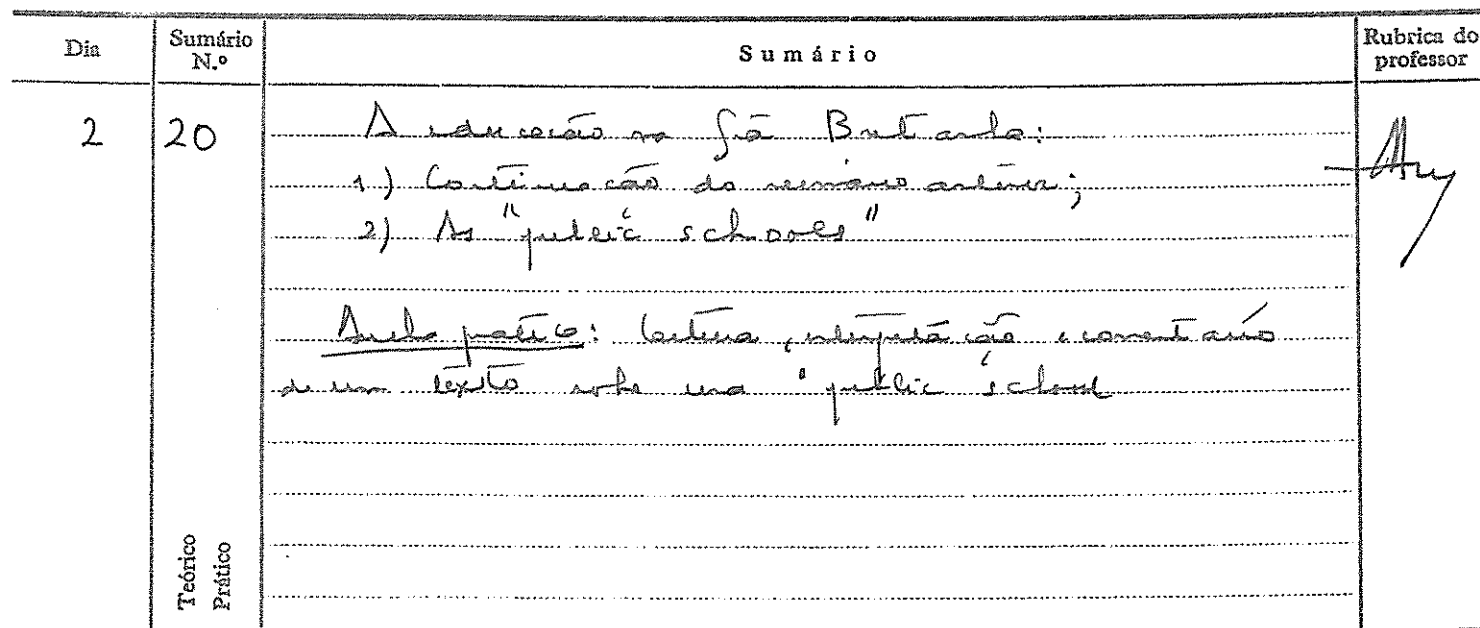 Dia
Sumário N.º
Sumário
Rubrica do professor
2
20
A educação na Grã Bretanha:
1) Continuação do sumário anterior;
2) As "public schools"
Aula prática: leitura, interpretação e comentário
de um texto sobre uma "public school
Teórico
Prático